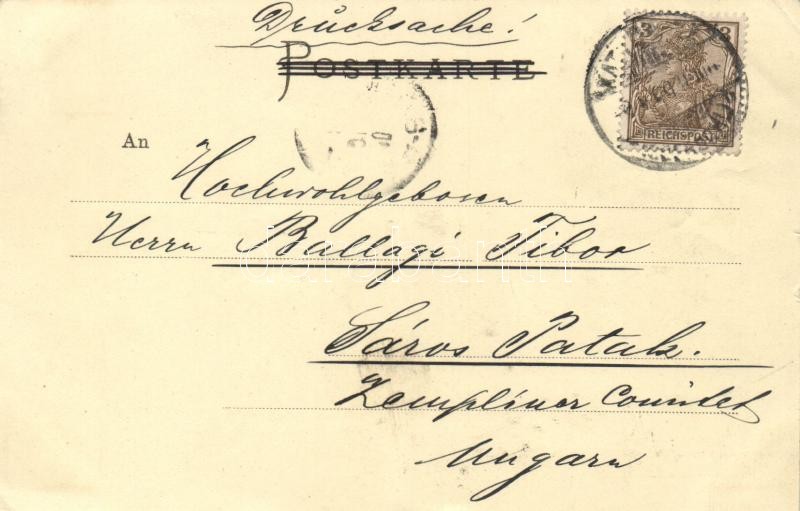 Drucksache!
POSTKARTE
3 3
REICHSPOST
An
Hochwohlgeboren
Herrn Ballagi Tibor
Sáros Patak.
Zempliner Comitet
Ungarn